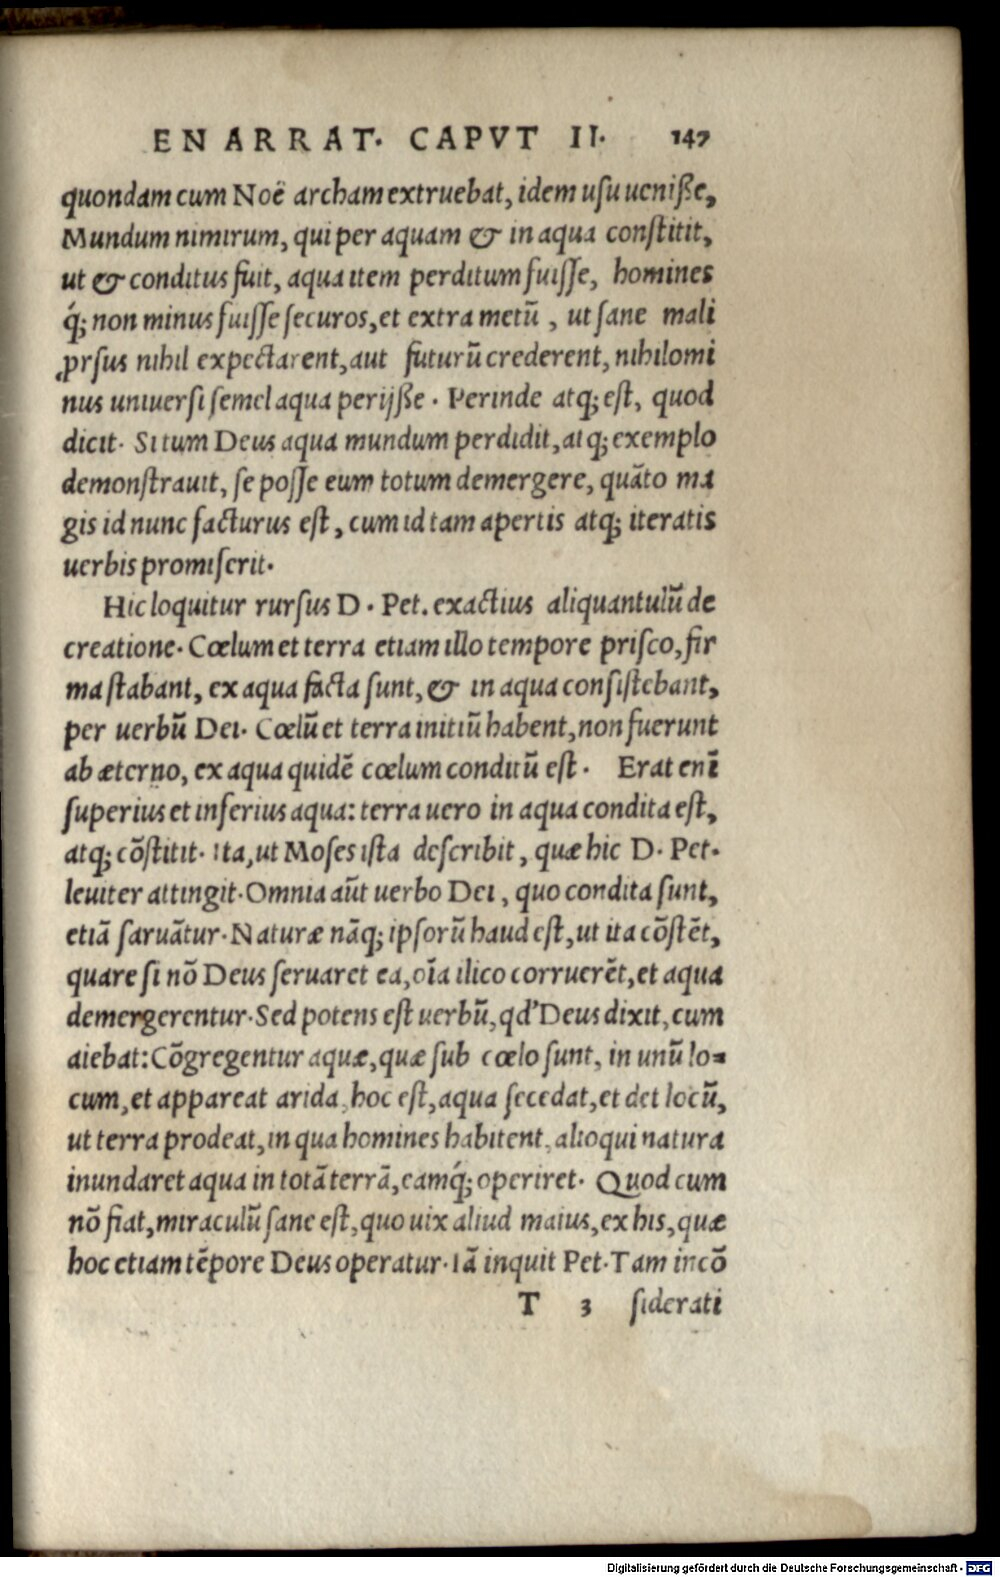 ENARRAT. CAPVT II. 147
quondam cum Noë archam extruebat, idem usu uenisse,
Mundum nimirum, qui per aquam & in aqua constitit,
ut & conditus fuit, aqua item perditum fuisse, homines
q́; non minus fuisse securos, et extra metū, ut sane mali
ꝓrsus nihil expectarent, aut futurū crederent, nihilomi
nus uniuersi semel aqua perijsse. Perinde atq; est, quod
dicit. Si tum Deus aqua mundum perdidit, atq; exemplo
demonstrauit, se posse eum totum demergere, quāto ma
gis id nunc facturus est, cum id tam apertis atq; iteratis
uerbis promiserit.
Hic loquitur rursus D. Pet. exactius aliquantulū de
creatione. Cœlum et terra etiam illo tempore prisco, fir
ma stabant, ex aqua facta sunt, & in aqua consistebant,
per uerbū Dei. Cœlū et terra initiū habent, non fuerunt
ab æterno, ex aqua quidē cœlum conditū est. Erat enī
superius et inferius aqua: terra uero in aqua condita est,
atq; cōstitit. Ita, ut Moses ista describit, quæ hic D. Pet.
leuiter attingit. Omnia aūt uerbo Dei, quo condita sunt,
etiā saruātur. Naturæ nāq; ipsorū haud est, ut ita cōstēt,
quare si nō Deus seruaret ea, oīa ilico corruerēt, et aqua
demergerentur. Sed potens est uerbū, qd' Deus dixit, cum
aiebat: Cōgregentur aquæ, quæ sub cœlo sunt, in unū lo=
cum, et appareat arida, hoc est, aqua secedat, et det locū,
ut terra prodeat, in qua homines habitent, alioqui natura
inundaret aqua in totā terrā, eamq́; operiret. Quod cum
nō fiat, miraculū sane est, quo uix aliud maius, ex his, quæ
hoc etiam tēpore Deus operatur. Iā inquit Pet. Tam incō
T 3 siderati
Digitalisierung gefördert durch die Deutsche Forschungsgemeinschaft - DFG